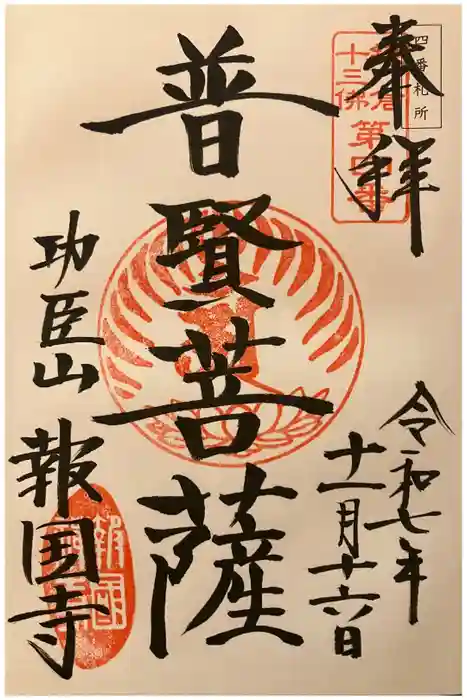 四番札所
奉拝
鎌倉
十三佛
第四番
令和七年
十一月十六日
普賢菩薩
功臣山
報国寺